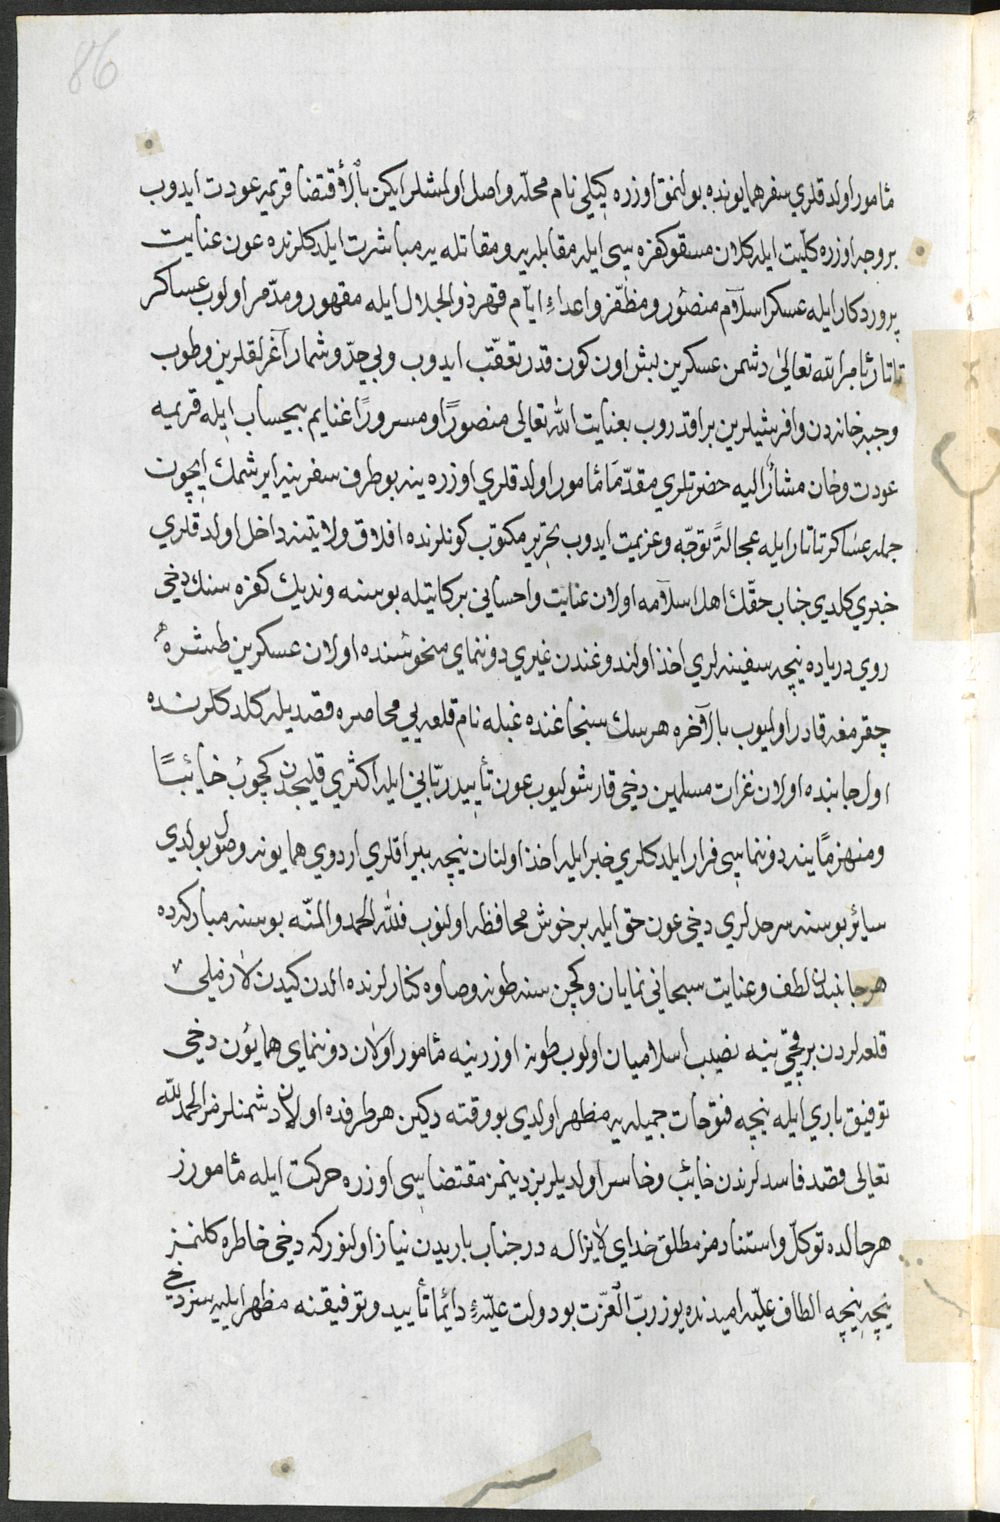 86
مأمور اولدقلري سفر همايونده بولنمق اوزره كيلي نام محلّه واصل اولمشلر ايكن بالأقتضا قريمه عودت ايدوب
بر وجه اوزره كليّت ايله كلان مسقو كفره سي ايله مقابله يه و مقاتله يه مباشرت ايلدكلرنده عون عنايت
پروردكار ايله عسكر اسلام منصور و مظفّر و اعداء ايام قهر ذو الجلال ايله مقهور و مدمّر اولوب عساكر
تاتار بأمر الله تعالى دشمن عسكرين بش اون كون قدر تعقّب ايدوب و بي حدّ و شمار آغرلقلرين و طوب
و جبه خانه دن وافر شيلرين براقدروب بعنايت الله تعالى منصورًا و مسرورًا غنايم بيحساب ايله قريمه
عودت و خان مشار اليه حضرتلري مقدّما مأمور اولدقلري اوزره ينه بو طرف سفرينه ايرشمك ايچون
جمله عساكر تاتار ايله عجالةً توجّه و عزيمت ايدوب تحرير مكتوب كونلرنده افلاق ولايتنه داخل اولدقلري
خبري كلدي جناب حقّك اهل اسلامه اولان عنايت و احساني بركاتيله بوسنه و نديك كفره سنك دخي
روي درياده نيچه سفينه لري اخذ اولندوغندن غيري دوننماي منحوسنده اولان عسكرين طشره
چقرمغه قادر اوليوب بالآخره هرسك سنجاغنده غبله نام قلعه يي محاصره قصديله كلدكلرنده
اول جانبده اولان غزات مسلمين دخي قارشوليوب عون تأييد ربّاني ايله اكثري قليجدن كچوب خائبًا
و منهزمًا ينه دوننماسي فرار ايلدكلري خبر ايله اخذ اولنان نيچه بيراقلري اردوي همايونه وصول بولدي
سائر بوسنه سرحدلري دخي عون حق ايله بر خوش محافظه اولنوب فلله الحمد و المنّه بو سنه مباركه ده
هر جانبدن لطف و عنايت سبحاني نمايان و كچن سنه طونه و صاوه كنارلرنده الدن كيدن لازملي
قلعه لردن بر قچي ينه نصيب اسلاميان اولوب طونه اوزرينه مأمور اولان دوننماي همايون دخي
توفيق باري ايله نيچه فتوحات جميله يه مظهر اولدي بو وقته دكين هر طرفده اولان دشمنلرمز الحمد لله
تعالى قصد فاسدلرندن خائب و خاسر اولديلر بز دينمز مقتضاسي اوزره حركت ايله مأمورز
هر حالده توكّل و استنادمز مطلق خداي لايزاله در جناب باريدن نياز اولنور كه دخي خاطره كلنمز
نيچه نيچه الطاف عليّه اميدنده يوز ربّ العزّت بو دولت عليّه يي دائما تأييد و توفيقنه مظهر ايليه سز دخي